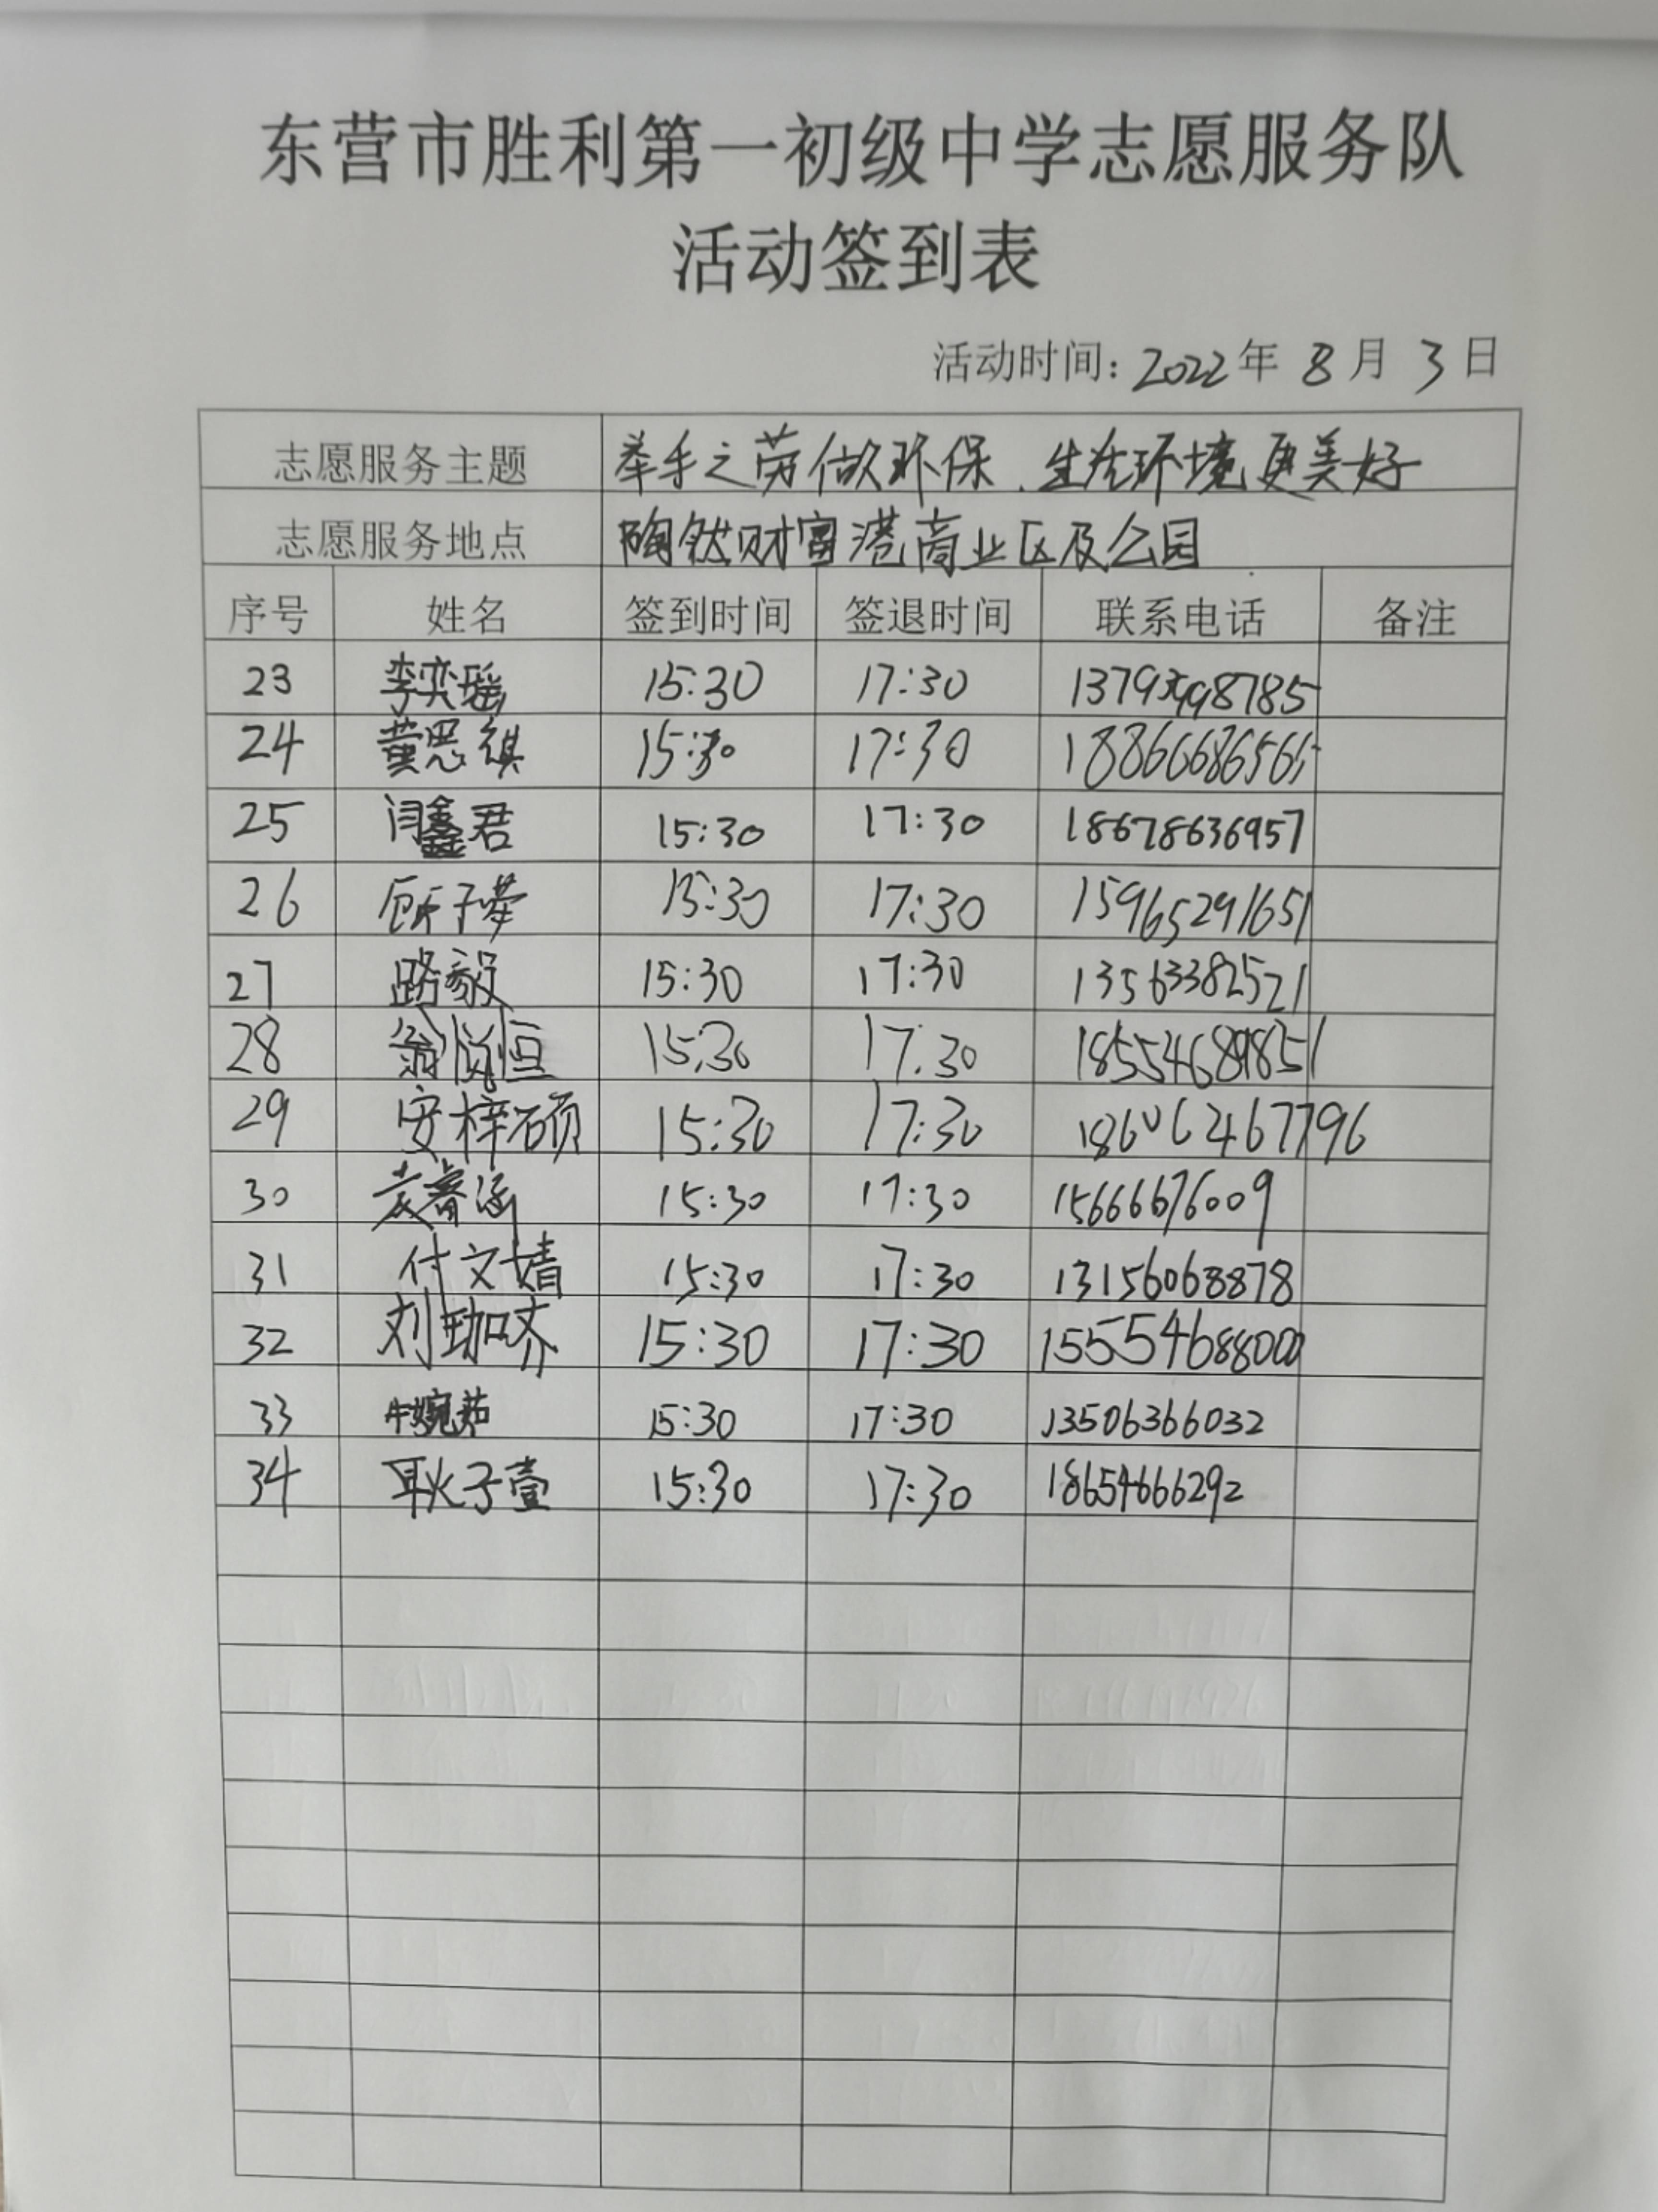 东营市胜利第一初级中学志愿服务队
活动签到表
活动时间：2022年 8月 3日
志愿服务主题 举手之劳做环保、生活环境更美好
志愿服务地点 陶然财富港商业区及公园
序号 姓名 签到时间 签退时间 联系电话 备注
23 李奕瑶 15:30 17:30
24 黄思祺 15:30 17:30 18866686565
25 闫鑫君 15:30 17:30 18678636957
26 15:30 17:30 15965291651
27 路毅 15:30 17:30 13563382521
28 翁悦恒 15:30 17:30 18554689851
29 安梓硕 15:30 17:30 186062467796
30 15:30 17:30 15666676009
31 付文婧 15:30 17:30 13156068878
32 刘珈吩 15:30 17:30 15554688000
33 牛婉茹 15:30 17:30 13506366032
34 耿子壹 15:30 17:30 18654666292